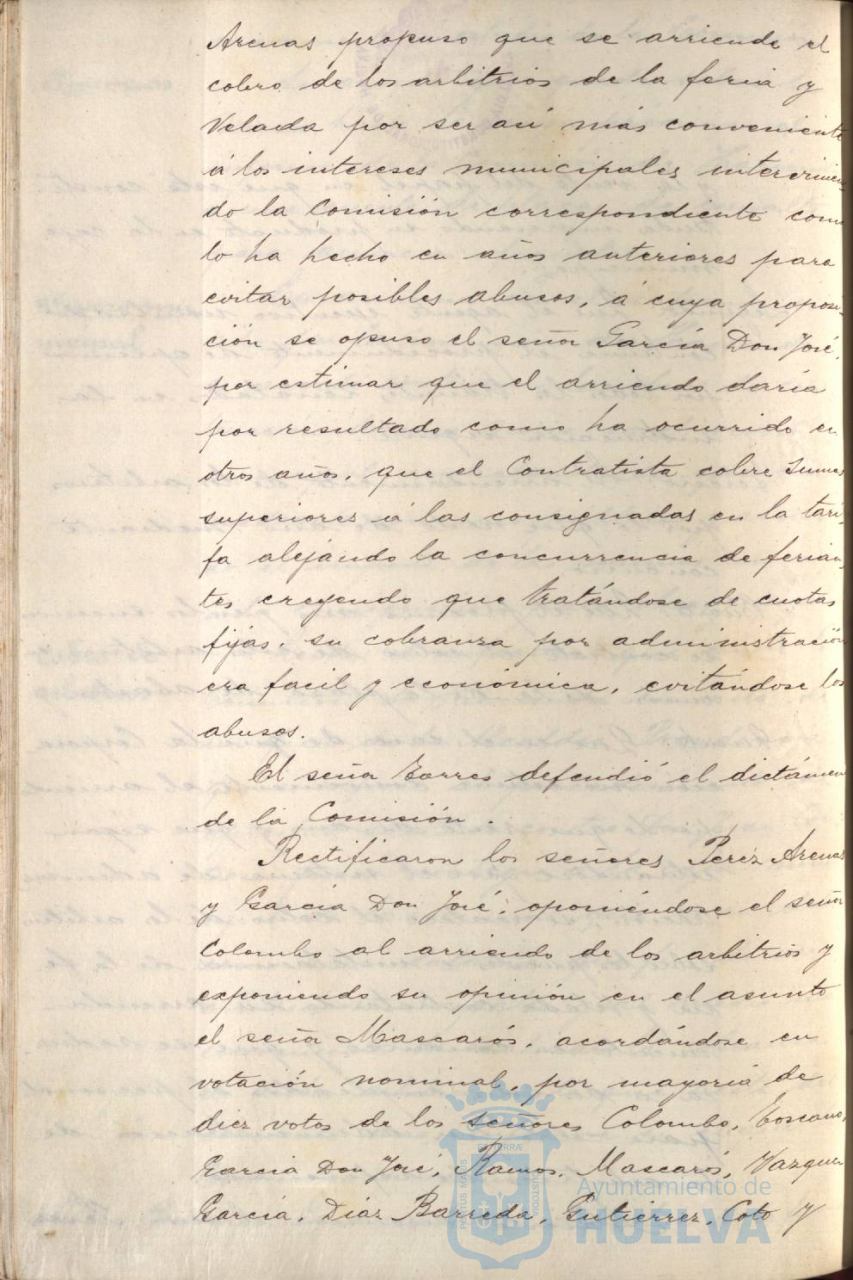 Arenas propuso que se arriende el
cobro de los arbitrios de la feria y
Velada por ser asi más conveniente
á los intereses municipales intervinien-
do la Comisión correspondiente como
lo ha hecho en años anteriores para
evitar posibles abusos, á cuya proposi-
ción se opuso el señor García Don José,
por estimar que el arriendo daría
por resultado como ha ocurrido en
otros años, que el Contratista cobre sumas
superiores á las consignadas en la tari-
fa alejando la concurrencia de ferian-
tes creyendo que tratándose de cuotas
fijas, su cobranza por administración
era facil y económica, evitándose los
abusos.
El señor Torres defendió el dictámen
de la Comisión.
Rectificaron los señores Perez Arenas
y García Don José, oponiéndose el señor
Colombo al arriendo de los arbitrios y
exponiendo su opinión en el asunto
el señor Mascarós, acordándose en
votación nominal, por mayoría de
diez votos de los señores Colombo, Toscano,
García Don José, Ramos, Mascarós, Vazquez
García, Díaz Barreda, Gutierrez, Coto y
Ayuntamiento de
HUELVA